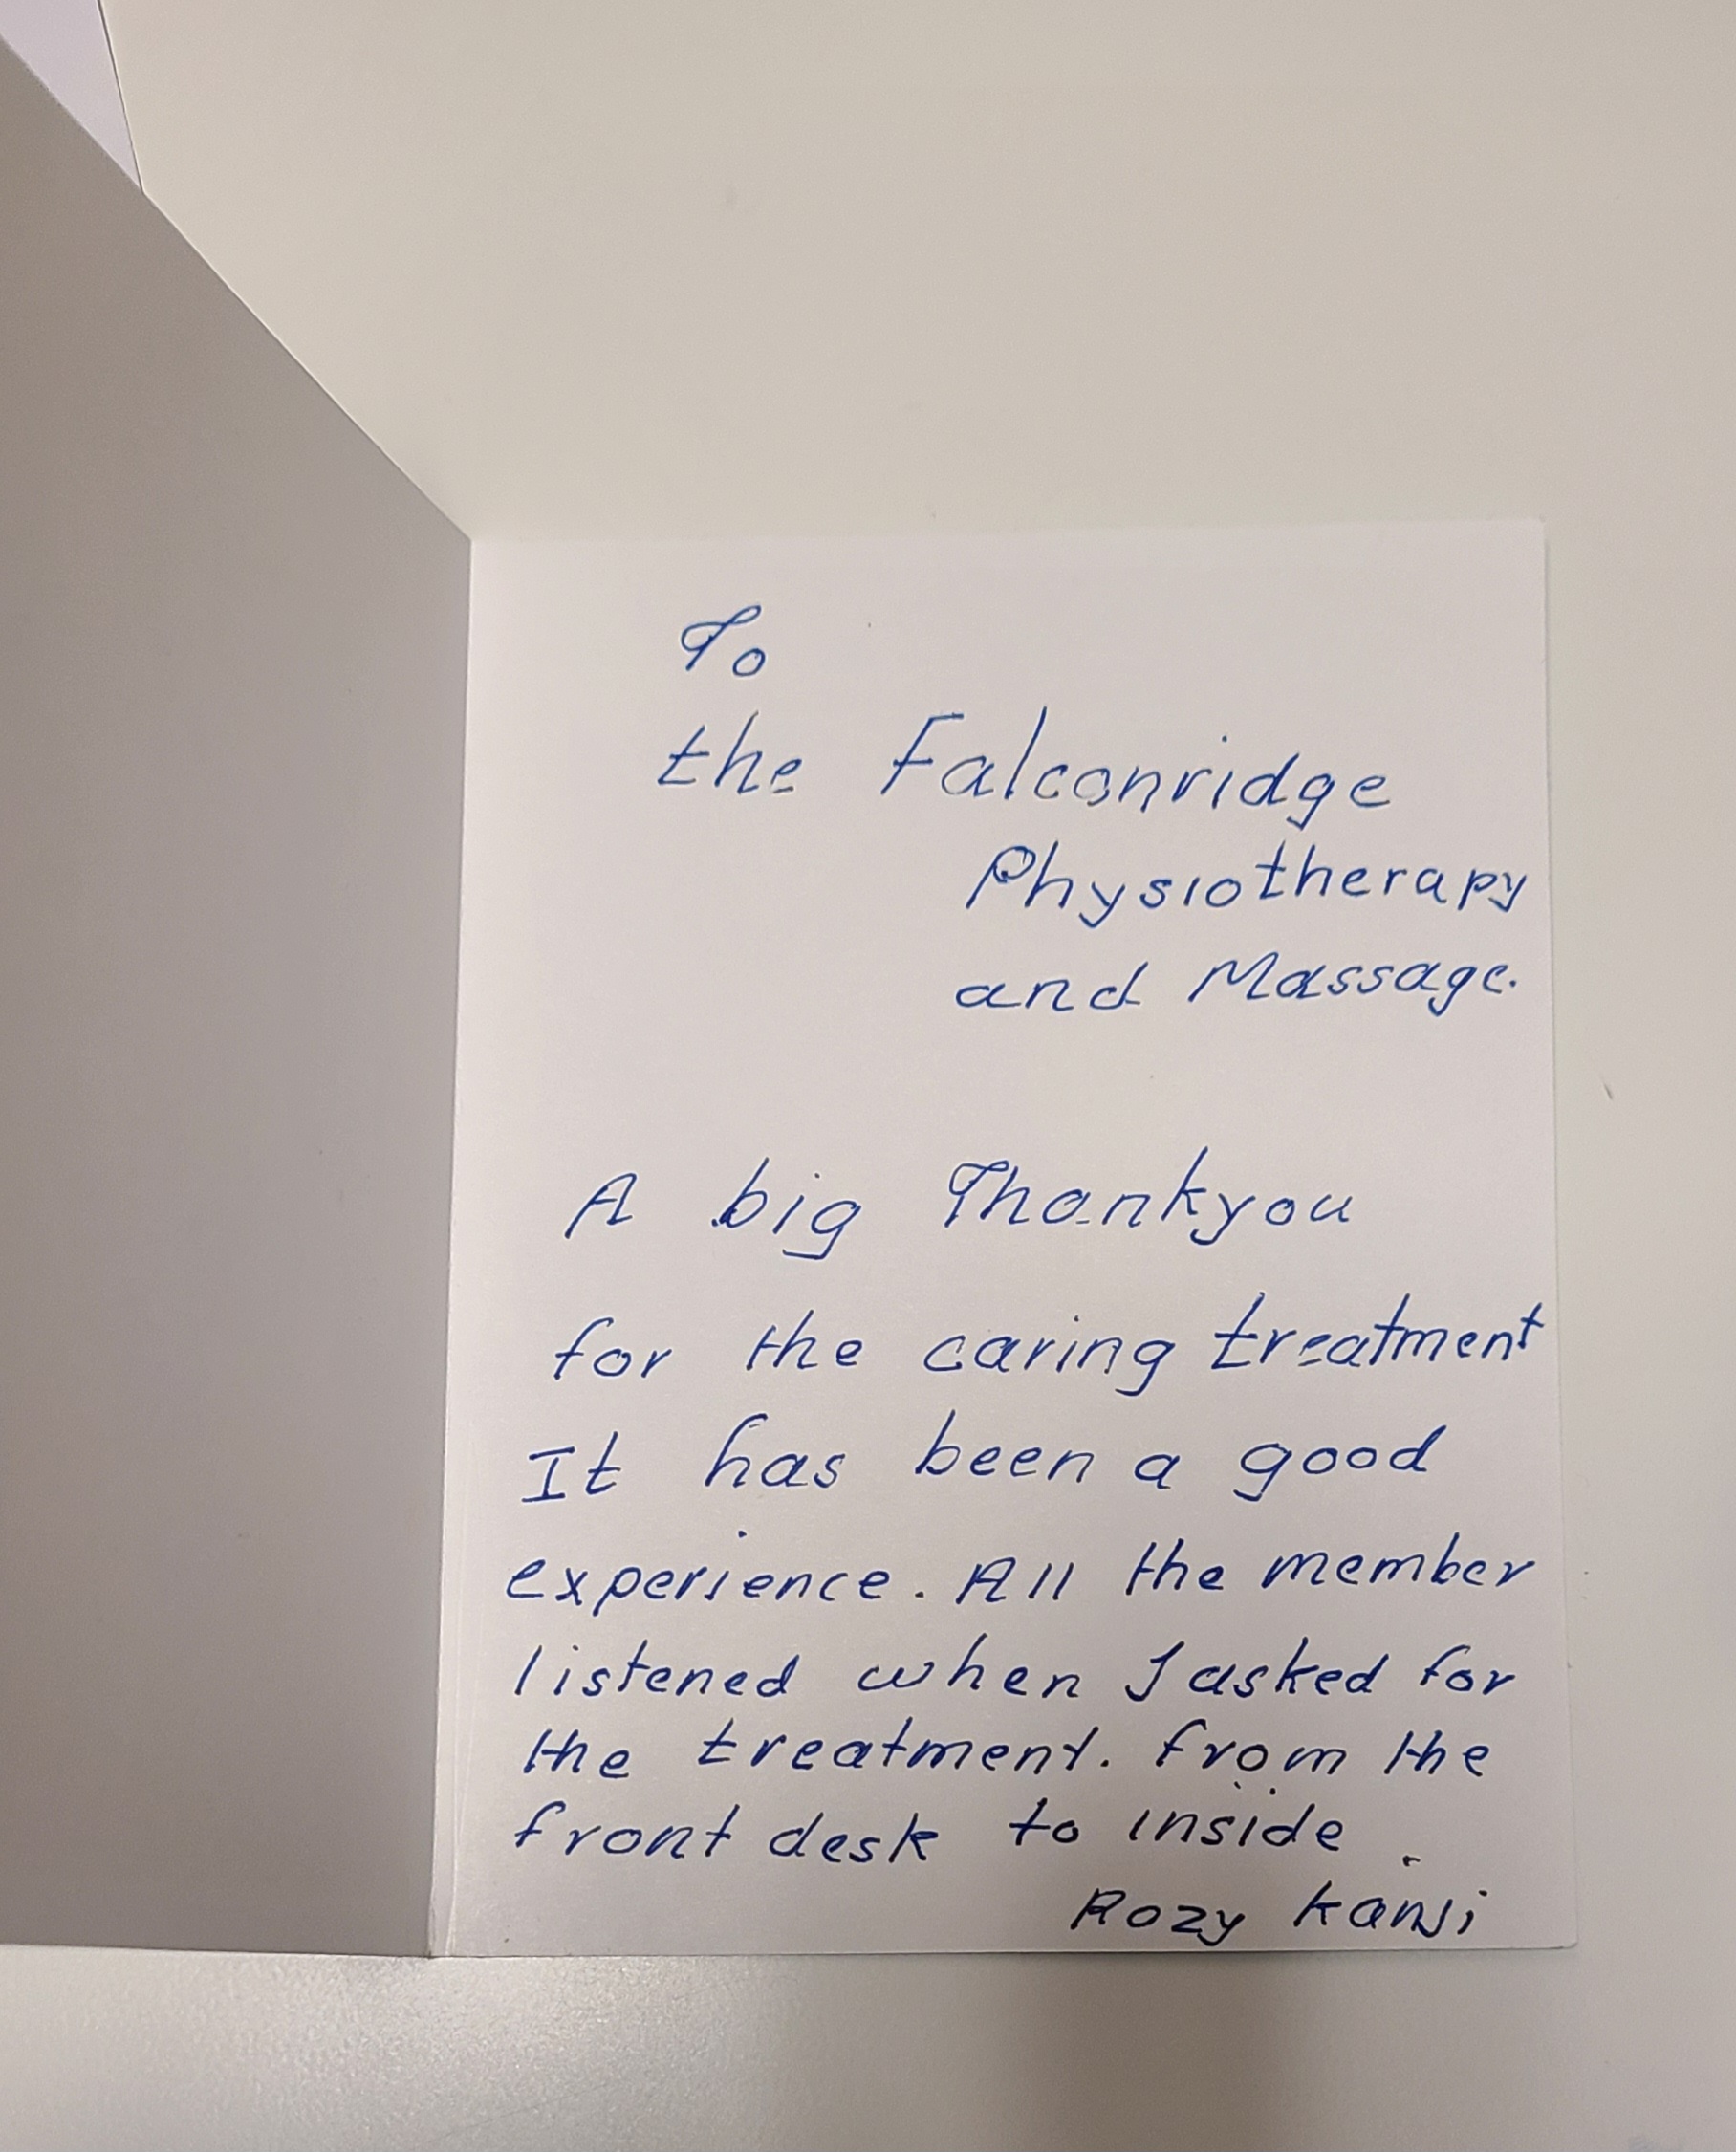 To
the Falconridge
Physiotherapy
and Massage.
A big Thankyou
for the caring treatment
It has been a good
experience. All the member
listened when I asked for
the treatment. from the
front desk to inside.
Rozy Kanji